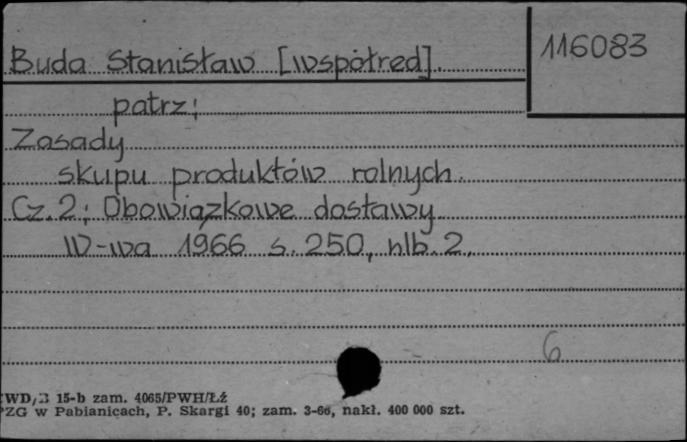 116083
Buda Stanisław [współred].
patrz:
Zasady
skupu produktów rolnych.
Cz. 2: Obowiązkowe dostawy
W-wa 1966 s. 250, nlb. 2.
6
15-b zam. 4065/PWH/Łź
w Pabianicach, P. Skargi 40; zam. 3-66, nakł. 400 000 szt.